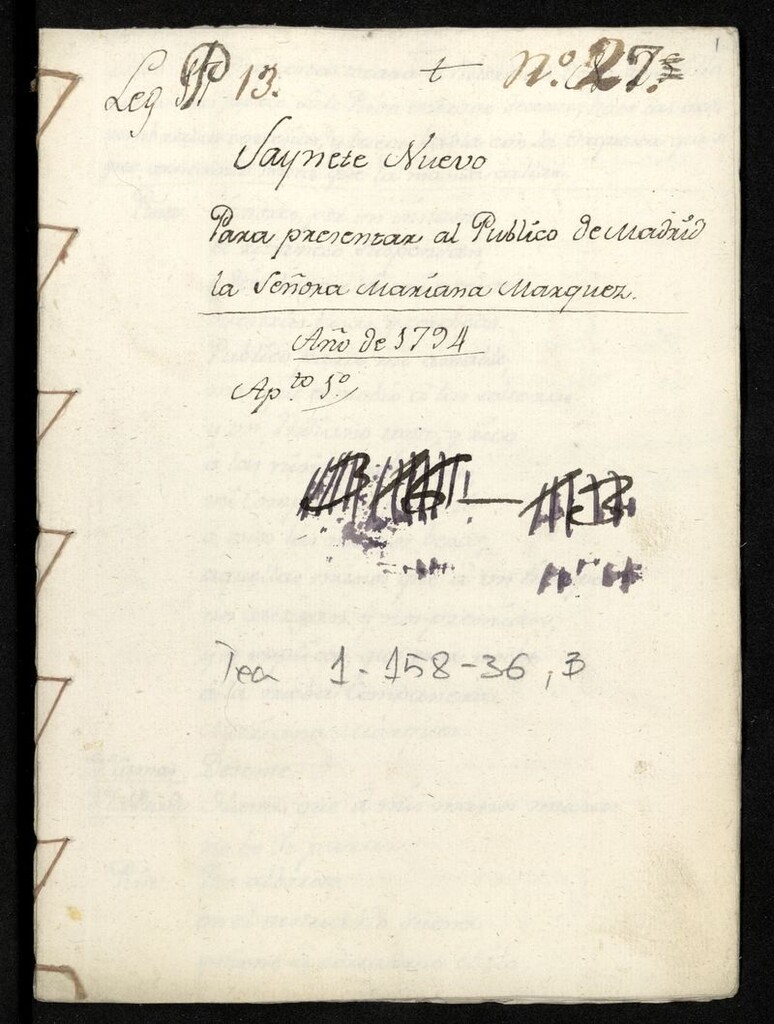 1
Leg 13. t n.º 27.
Saynete Nuevo
Para presentar al Publico de Madrid
la Señora Mariana Marquez.
Año de 1794
Ap.to 1º
Tea 1-158-36, B